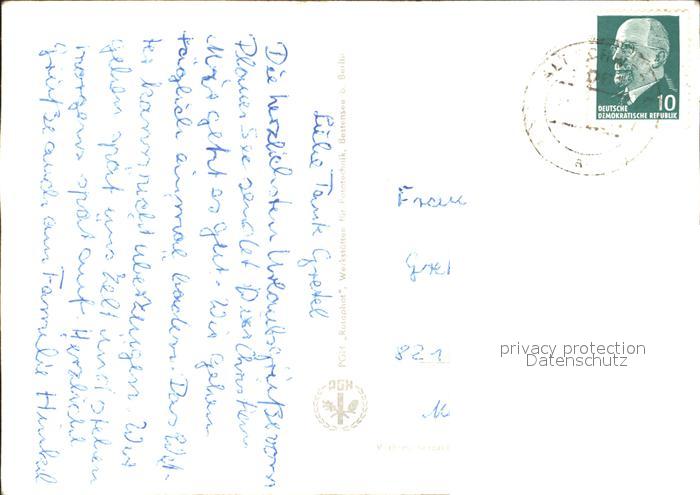 Liebe Tante Gretel
Die herzlichsten Urlaubsgrüße vom
Plauer See sendet Dir Christian
Mir geht es gut. Wir gehen
täglich einmal baden. Das Wet-
ter kann nicht überzeugen. Wir
gehen spät ins Zelt und stehen
morgens spät auf. Herzliche
Grüße auch an Familie Hinkel
PGH „Rotophot", Werkstätten für Fototechnik, Bestensee b. Berlin
PGH
DEUTSCHE
DEMOKRATISCHE REPUBLIK
10
Frau
Gret
821
privacy protection
Datenschutz